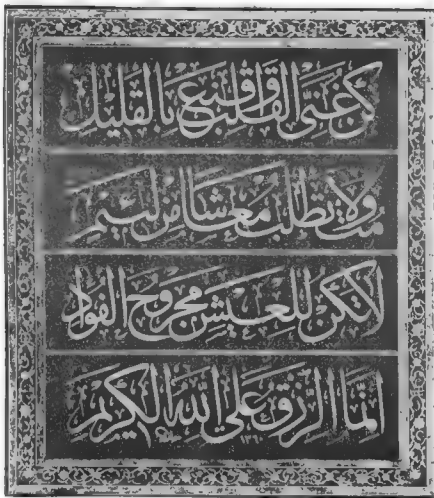 كن غنى القلب واقنع بالقليل
مت ولا تطلب معاشا من لئيم
لا تكن للعيش مجروح الفواد
انما الرزق على الله الكريم
١٣٦٠